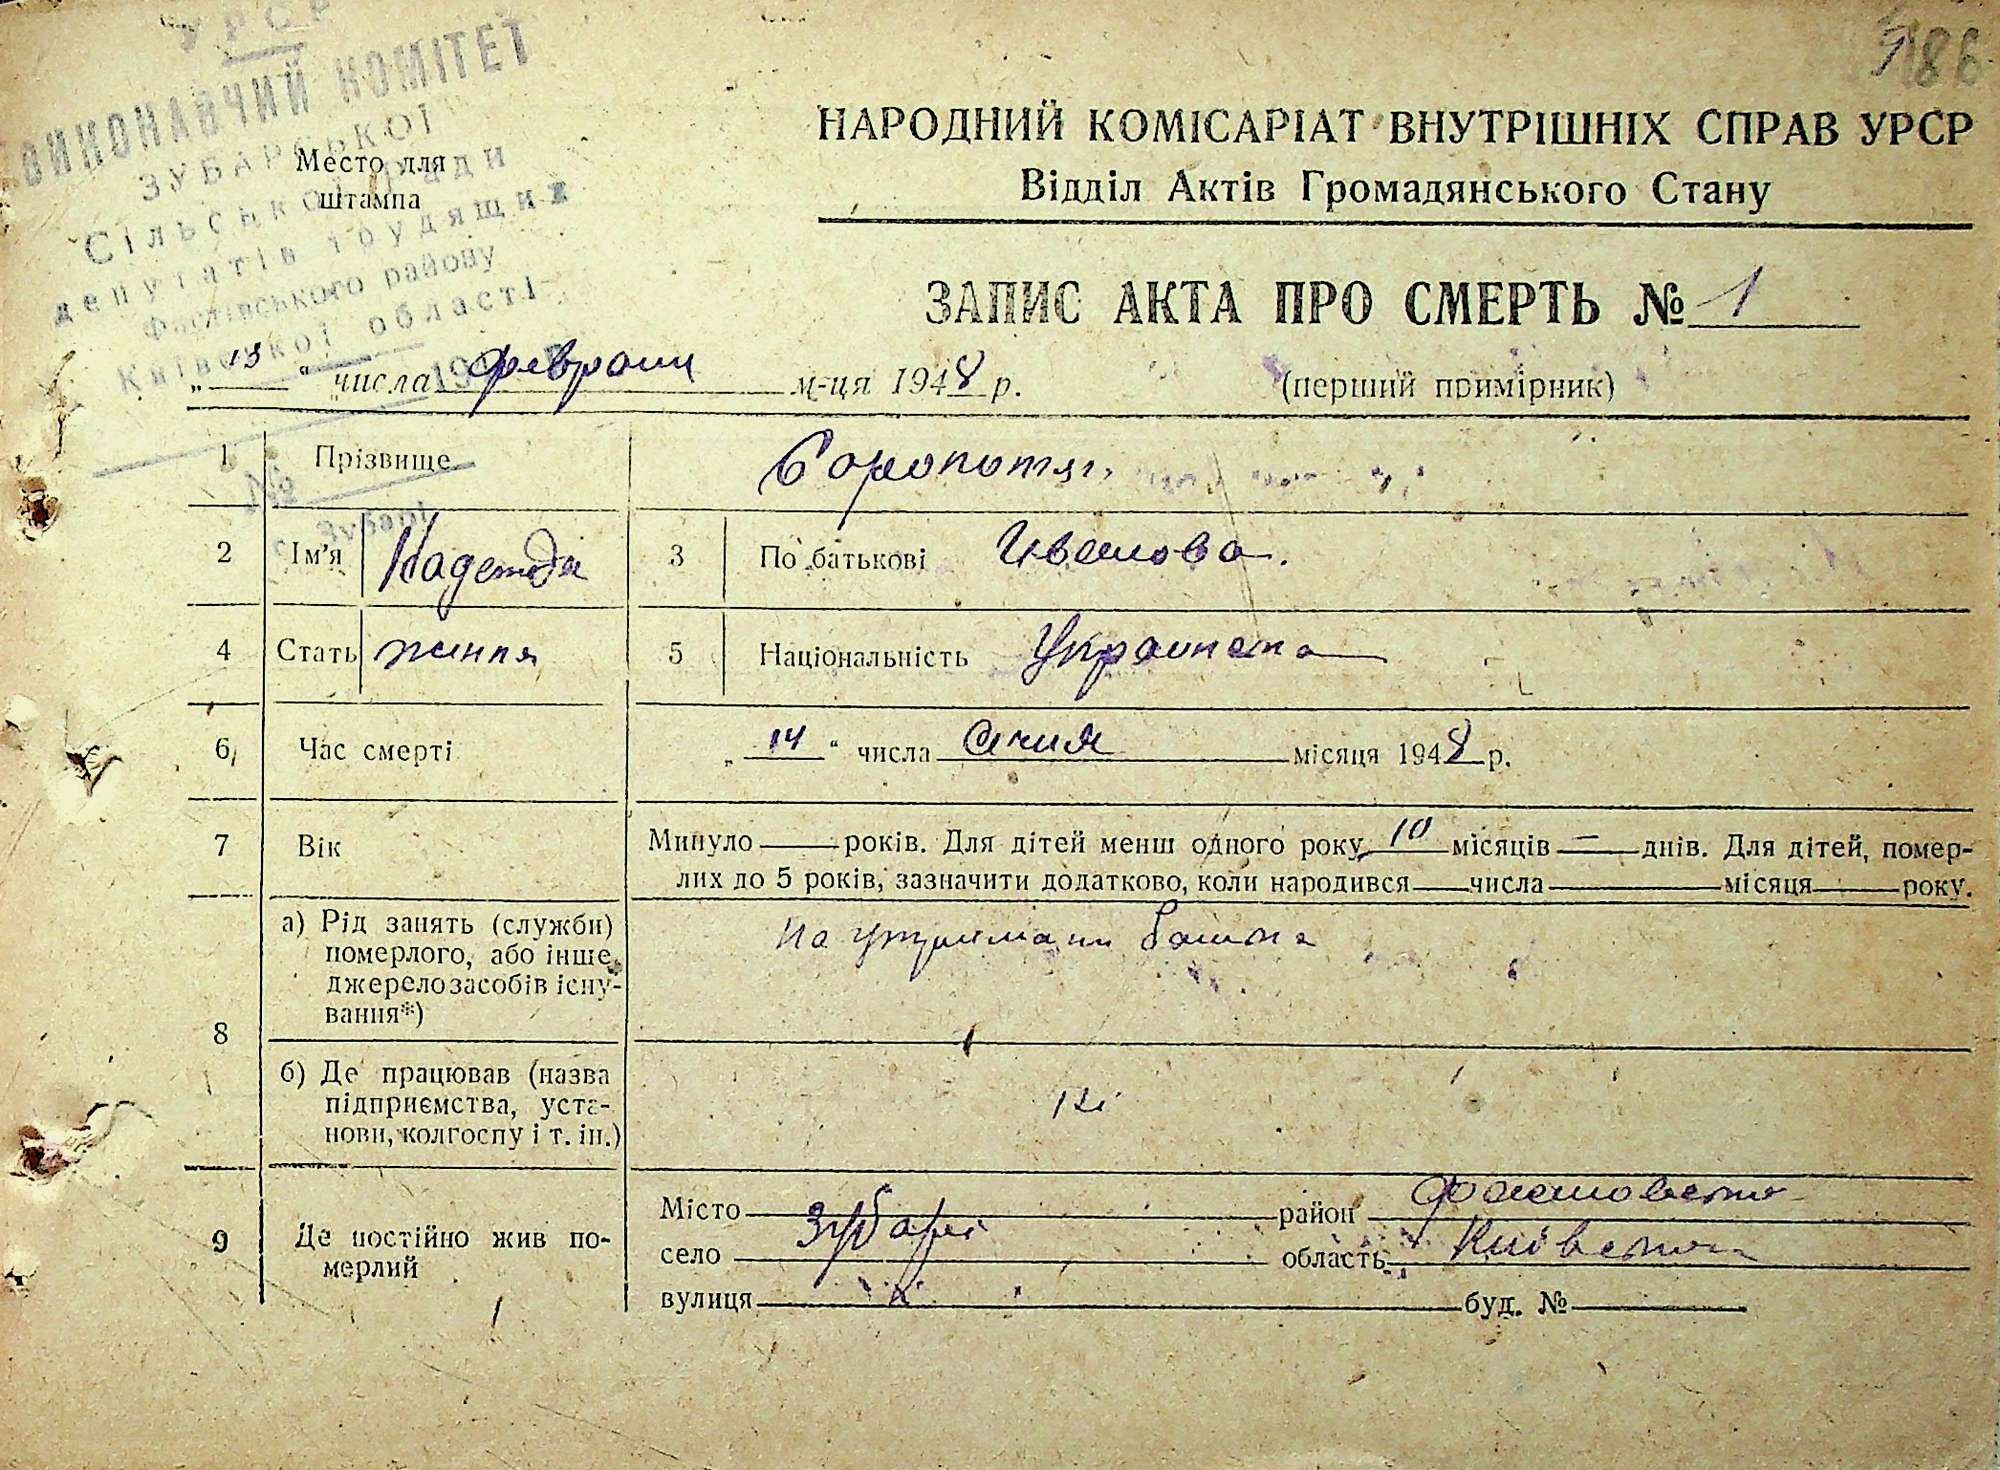 УРСР
ВИКОНАВЧИЙ КОМІТЕТ
ЗУБАРСЬКОЇ
Сільської Ради
депутатів трудящих
Фастівського району
Київської області
194
№
с. Зубарі
Место для
штампа
186
НАРОДНИЙ КОМІСАРІАТ ВНУТРІШНІХ СПРАВ УРСР
Відділ Актів Громадянського Стану
ЗАПИС АКТА ПРО СМЕРТЬ № 1
„13“ числа февраля м-ця 1948 р. (перший примірник)
1 Прізвище
2 Ім'я Надежда 3 По батькові Ивановна.
4 Стать жіння 5 Національність Українська
6 Час смерті „14“ числа Січня місяця 1948 р.
7 Вік Минуло — років. Для дітей менш одного року 10 місяців — днів. Для дітей, помер-
лих до 5 років, зазначити додатково, коли народився — числа — місяця — року.
8 а) Рід занять (служби)
померлого, або інше
джерело засобів існу-
вання*)
На утриманні батька
б) Де працював (назва
підприємства, уста-
нови, колгоспу і т. ін.)
Ні
9 Де постійно жив по-
мерлий
Місто район Фастовсько
село Зубарі область Київська
вулиця буд. №